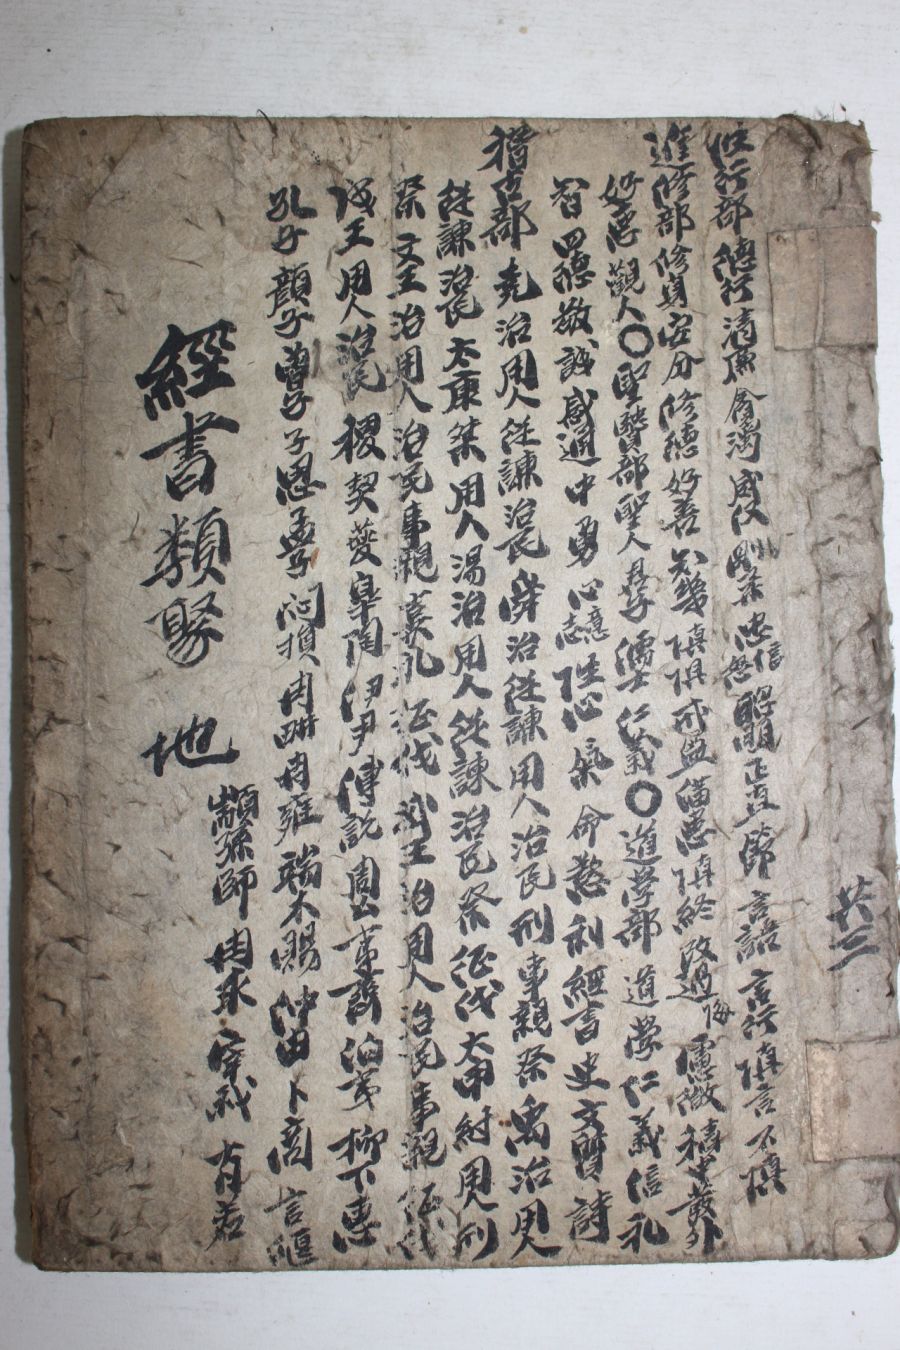 共三
行部 德行 淸廉 貪濁 威仪 剛柔 忠信恕 聰明 正直 節 言語 言行 慎言 不慎
進修部 修身 安分 修德 好善 知幾 慎惧 戒盈滿 慎終 改過悔 慮微 積中發外
好惡 觀人 〇 聖賢部 聖人 君子 儒士 仁義 〇 道學部 道學 仁義信礼
智 四德 敬 誠 感通 中 勇 心志意 性心 氣 命 慾 利 經書 史 文賢 詩
稽古部 堯治 用人 從諫 治民 舜治 從諫 用人 治民 刑 事親 祭 禹治 用人
從諫 治民 太康 桀 用人 湯治 用人 從諫 治民 祭 征伐 太甲 紂 用人 刑
祭 文王治 用人 治民 事親 喪礼 征伐 武王治 用人 治民 事親 征伐
成王 用人 治民 稷 契 夔 皐陶 伊尹 傅說 周公 夷齊 泊夷 柳下惠
孔子 顔子 曽子 子思 孟子 閔損 冉畊 冉雍 端木賜 仲由 卜商 言偃
顓孫師 冉求 宰我 有若
經書類聚 地